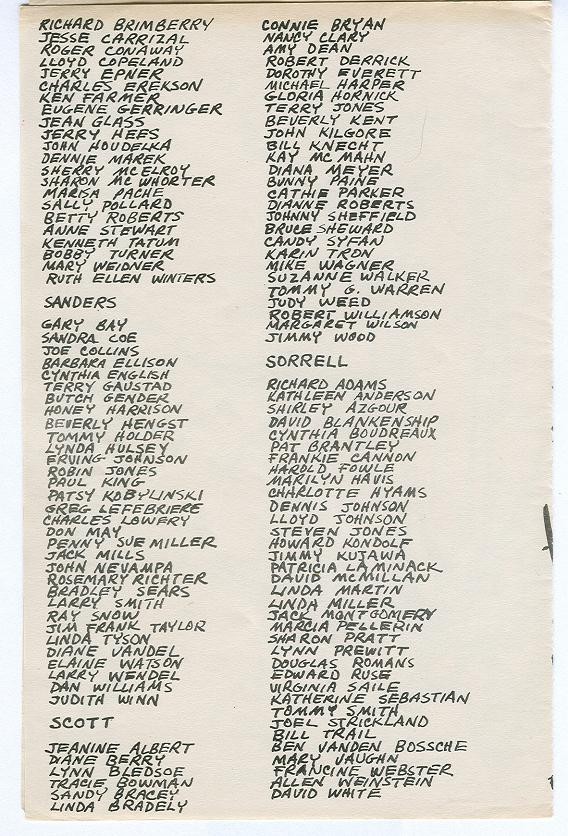 RICHARD BRIMBERRY
JESSE CARRIZAL
ROGER CONAWAY
LLOYD COPELAND
JERRY EPNER
CHARLES EREKSON
KEN FARMER
EUGENE GERRINGER
JEAN GLASS
JERRY HEES
JOHN HOUDELKA
DENNIE MAREK
SHERRY MCELROY
SHARON MCWHORTER
MARISA PACHE
SALLY POLLARD
BETTY ROBERTS
ANNE STEWART
KENNETH TATUM
BOBBY TURNER
MARY WEIDNER
RUTH ELLEN WINTERS
SANDERS
GARY BAY
SANDRA COE
JOE COLLINS
BARBARA ELLISON
CYNTHIA ENGLISH
TERRY GAUSTAD
BUTCH GENDER
HONEY HARRISON
BEVERLY HENGST
TOMMY HOLDER
LYNDA HULSEY
ERVING JOHNSON
ROBIN JONES
PAUL KING
PATSY KOBYLINSKI
GREG LEFEBRIERE
CHARLES LOWERY
DON MAY
PENNY SUE MILLER
JACK MILLS
JOHN NEVAMPA
ROSEMARY RICHTER
BRADLEY SEARS
LARRY SMITH
RAY SNOW
JIM FRANK TAYLOR
LINDA TYSON
DIANE VANDEL
ELAINE WATSON
LARRY WENDEL
DAN WILLIAMS
JUDITH WINN
SCOTT
JEANINE ALBERT
DIANE BERRY
LYNN BLEDSOE
TRACIE BOWMAN
SANDY BRACEY
LINDA BRADELY
CONNIE BRYAN
NANCY CLARY
AMY DEAN
ROBERT DERRICK
DOROTHY EVERETT
MICHAEL HARPER
GLORIA HORNICK
TERRY JONES
BEVERLY KENT
JOHN KILGORE
BILL KNECHT
KAY MCMAHN
DIANA MEYER
BUNNY PAINE
CATHIE PARKER
DIANNE ROBERTS
JOHNNY SHEFFIELD
BRUCE SHEWARD
CANDY SYFAN
KARIN TRON
MIKE WAGNER
SUZANNE WALKER
TOMMY G. WARREN
JUDY WEED
ROBERT WILLIAMSON
MARGARET WILSON
JIMMY WOOD
SORRELL
RICHARD ADAMS
KATHLEEN ANDERSON
SHIRLEY AZGOUR
DAVID BLANKENSHIP
CYNTHIA BOUDREAUX
PAT BRANTLEY
FRANKIE CANNON
HAROLD FOWLE
MARILYN HAVIS
CHARLOTTE HYAMS
DENNIS JOHNSON
LLOYD JOHNSON
STEVEN JONES
HOWARD KONDOLF
JIMMY KUJAWA
PATRICIA LAMINACK
DAVID MCMILLAN
LINDA MARTIN
LINDA MILLER
JACK MONTGOMERY
MARCIA PELLERIN
SHARON PRATT
LYNN PREWITT
DOUGLAS ROMANS
EDWARD RUSE
VIRGINIA SAILE
KATHERINE SEBASTIAN
TOMMY SMITH
JOEL STRICKLAND
BILL TRAIL
BEN VANDEN BOSSCHE
MARY VAUGHN
FRANCINE WEBSTER
ALLEN WEINSTEIN
DAVID WHITE